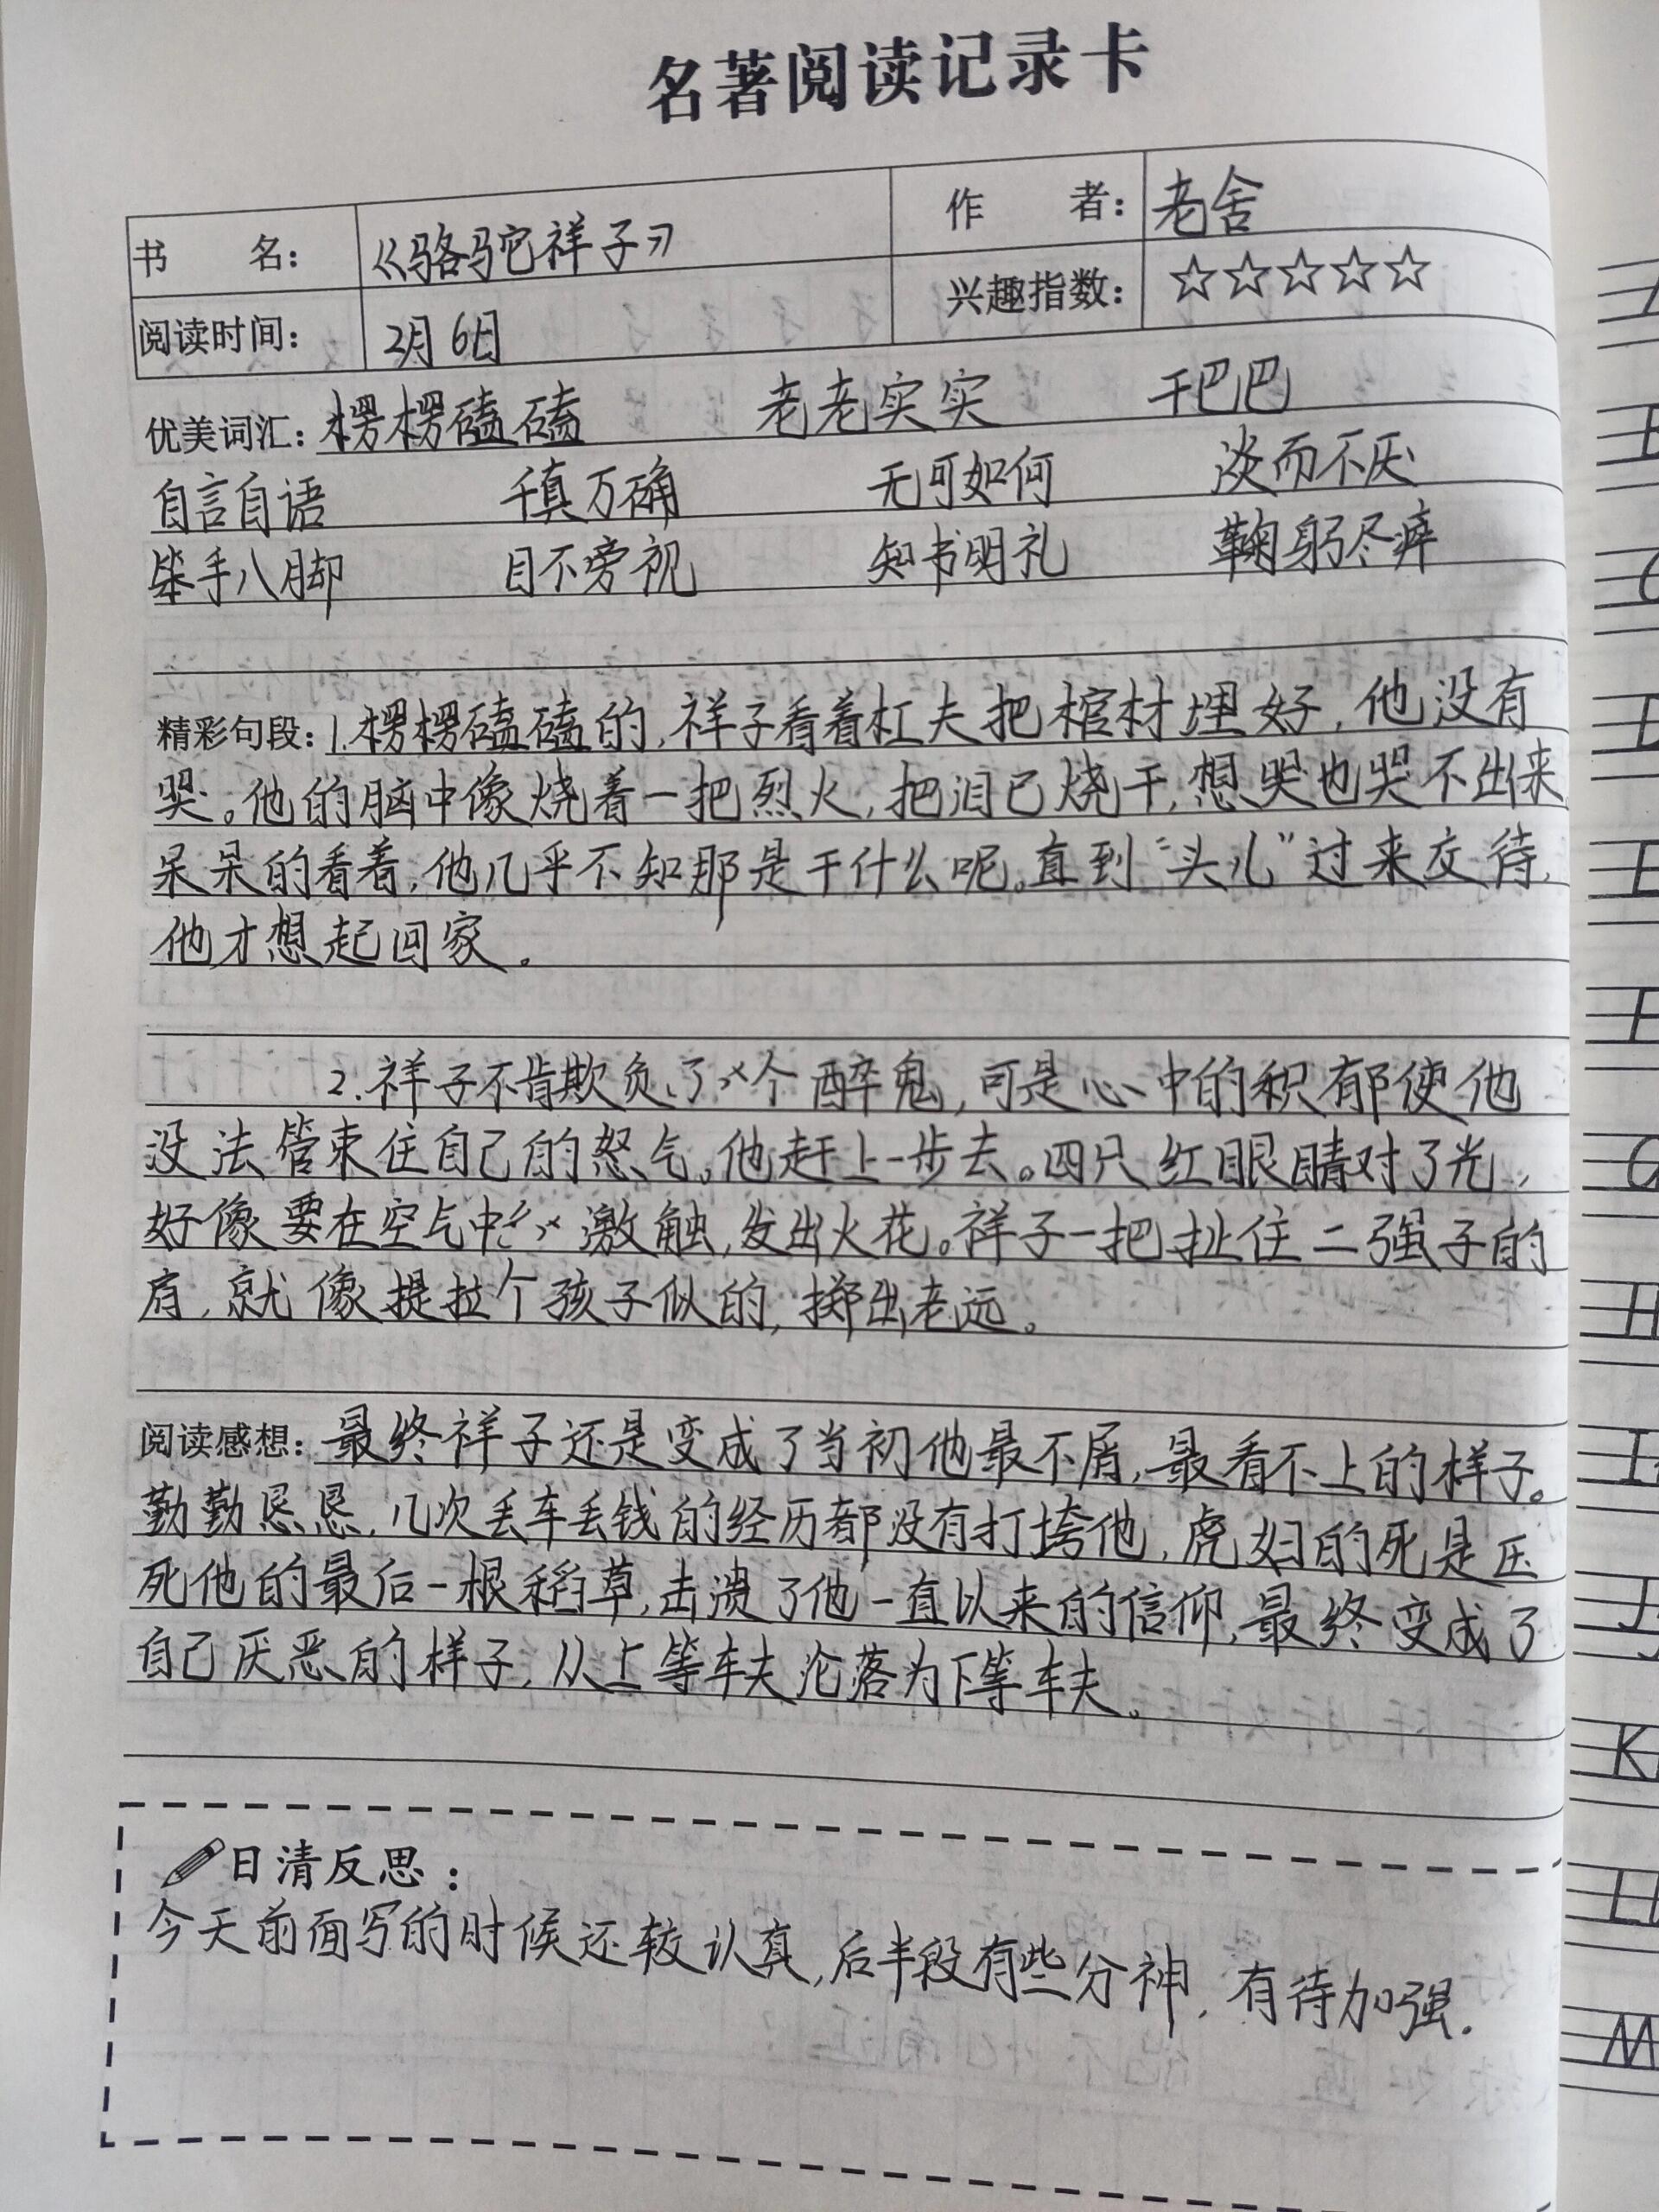 名著阅读记录卡
书 名： 《骆驼祥子》 作 者： 老舍
阅读时间： 2月6日 兴趣指数： ☆☆☆☆☆
优美词汇：楞楞磕磕 老老实实 干巴巴
自言自语 千真万确 无可如何 淡而不厌
笨手八脚 目不旁视 知书明礼 鞠躬尽瘁
精彩句段：1.楞楞磕磕的，祥子看着杠夫把棺材埋好，他没有
哭。他的脑中像烧着一把烈火，把泪已烧干，想哭也哭不出来
呆呆的看着，他几乎不知那是干什么呢。直到“头儿”过来交待，
他才想起回家。
2.祥子不肯欺负了个醉鬼，可是心中的积郁使他
没法管束住自己的怒气。他赶上一步去。四只红眼睛对了光，
好像要在空气中激触，发出火花。祥子一把扯住二强子的
肩，就像提拉个孩子似的，掷出老远。
阅读感想：最终祥子还是变成了当初他最不屑，最看不上的样子。
勤勤恳恳，几次丢车丢钱的经历都没有打垮他，虎妞的死是压
死他的最后一根稻草，击溃了他一直以来的信仰，最终变成了
自己厌恶的样子，从上等车夫沦落为下等车夫。
日清反思：
今天前面写的时候还较认真，后半段有些分神，有待加强.
E
F
G
H
I
J
K
M